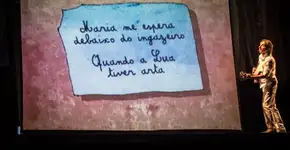 Maria me espera
debaixo do ingazeiro
Quando a Lua
tiver arta